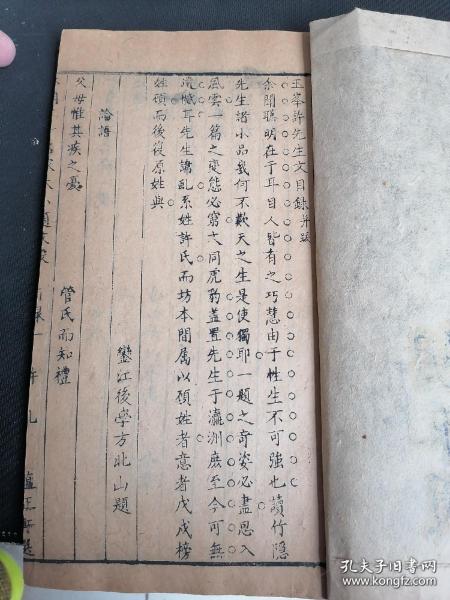 玉峯許先生文目錄并跋
余聞聰明在于耳目人皆有之巧慧由于性生不可強也讀竹隱
先生諸小品幾何不歎天之生是使獨耶一題之奇姿必盡思入
風雲一篇之變態必窮大同虎豹蓋置先生于瀛洲庶至今可無
遺憾耳先生諱乱系姓許氏而坊本間属以顧姓者意者戊戌榜
姓頋而後復原姓與
鑾江後學方北山題
論語
父母惟其疾之憂
管氏而知禮
孔夫子旧书网